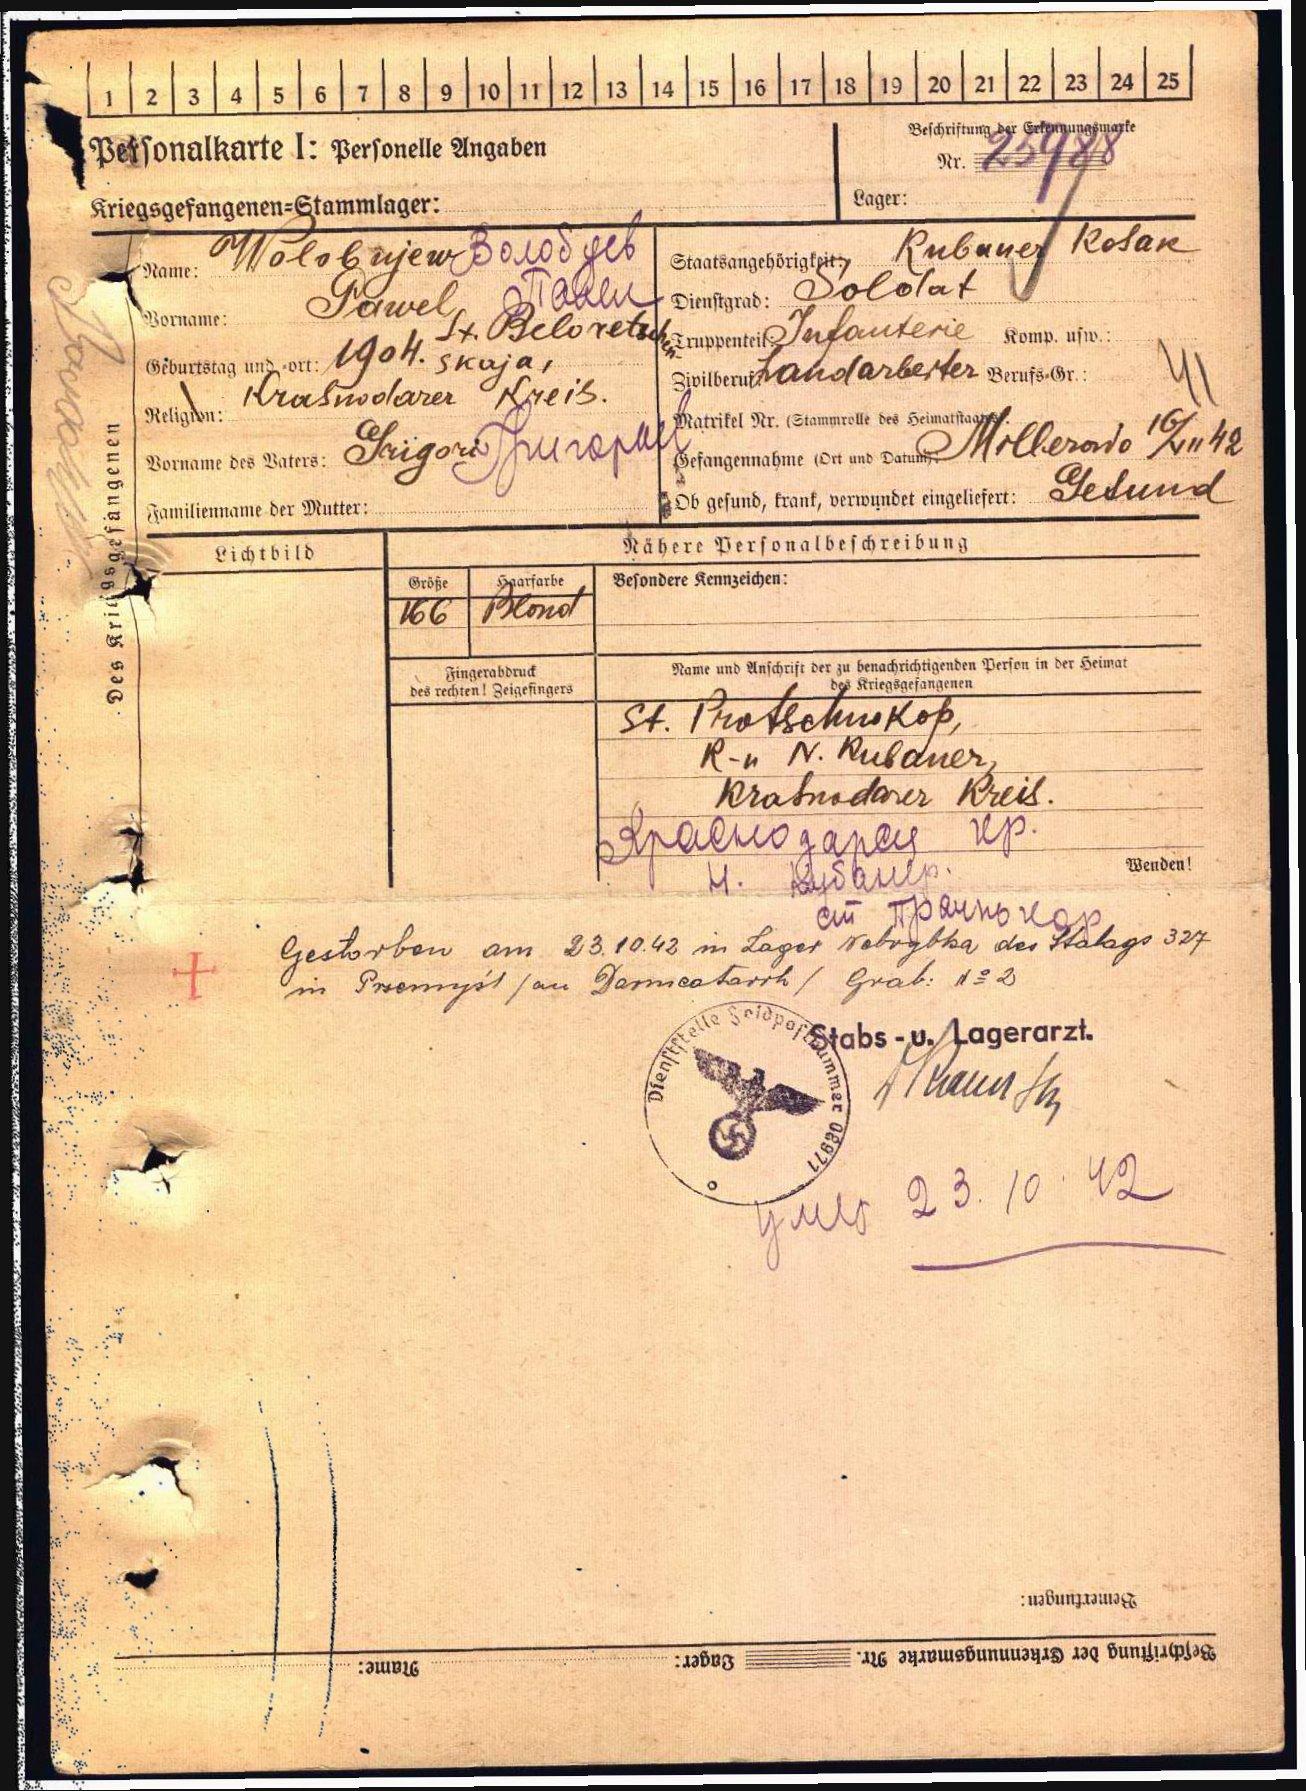 1 2 3 4 5 6 7 8 9 10 11 12 13 14 15 16 17 18 19 20 21 22 23 24 25
Personalkarte I: Personelle Angaben
Kriegsgefangenen=Stammlager:
Beschriftung der Erkennungsmarke
Nr. 25988
Lager:
Des Kriegsgefangenen
Name: Wolobujew Волобуев
Vorname: Pawel, Павел
Geburtstag und -ort: 1904. St. Beloretschen
skaja,
Religion: Krasnodarer Kreis.
Vorname des Vaters: Grigori Григорий
Familienname der Mutter:
Staatsangehörigkeit: Kubaner Kosak
Dienstgrad: Soldat
Truppenteil: Infanterie Komp. usw.:
Zivilberuf: Landarbeiter Berufs=Gr.: 41
Matrikel Nr. (Stammrolle des Heimatstaates):
Gefangennahme (Ort und Datum): Millerowo 16/VII 42
Ob gesund, krank, verwundet eingeliefert: Gesund
Lichtbild
Nähere Personalbeschreibung
Größe
166
Haarfarbe
Blond
Besondere Kennzeichen:
Fingerabdruck
des rechten! Zeigefingers
Name und Anschrift der zu benachrichtigenden Person in der Heimat
des Kriegsgefangenen
St. Protschnokop,
R-n N. Kubaner,
Krasnodarer Kreis.
Краснодарск кр.
Н. Кубанск р.
ст Прочнокоп
Wenden!
Gestorben am 23.10.42 in Lager Nehrybka des Stalags 327
in Przemyśl /an Darmcatarrh/ Grab: No 2
Stabs - u. Lagerarzt.
Dienststelle Feldpostnummer 06971
умер 23.10.42
Bemerkungen:
Beschriftung der Erkennungsmarke Nr. Lager: Name: